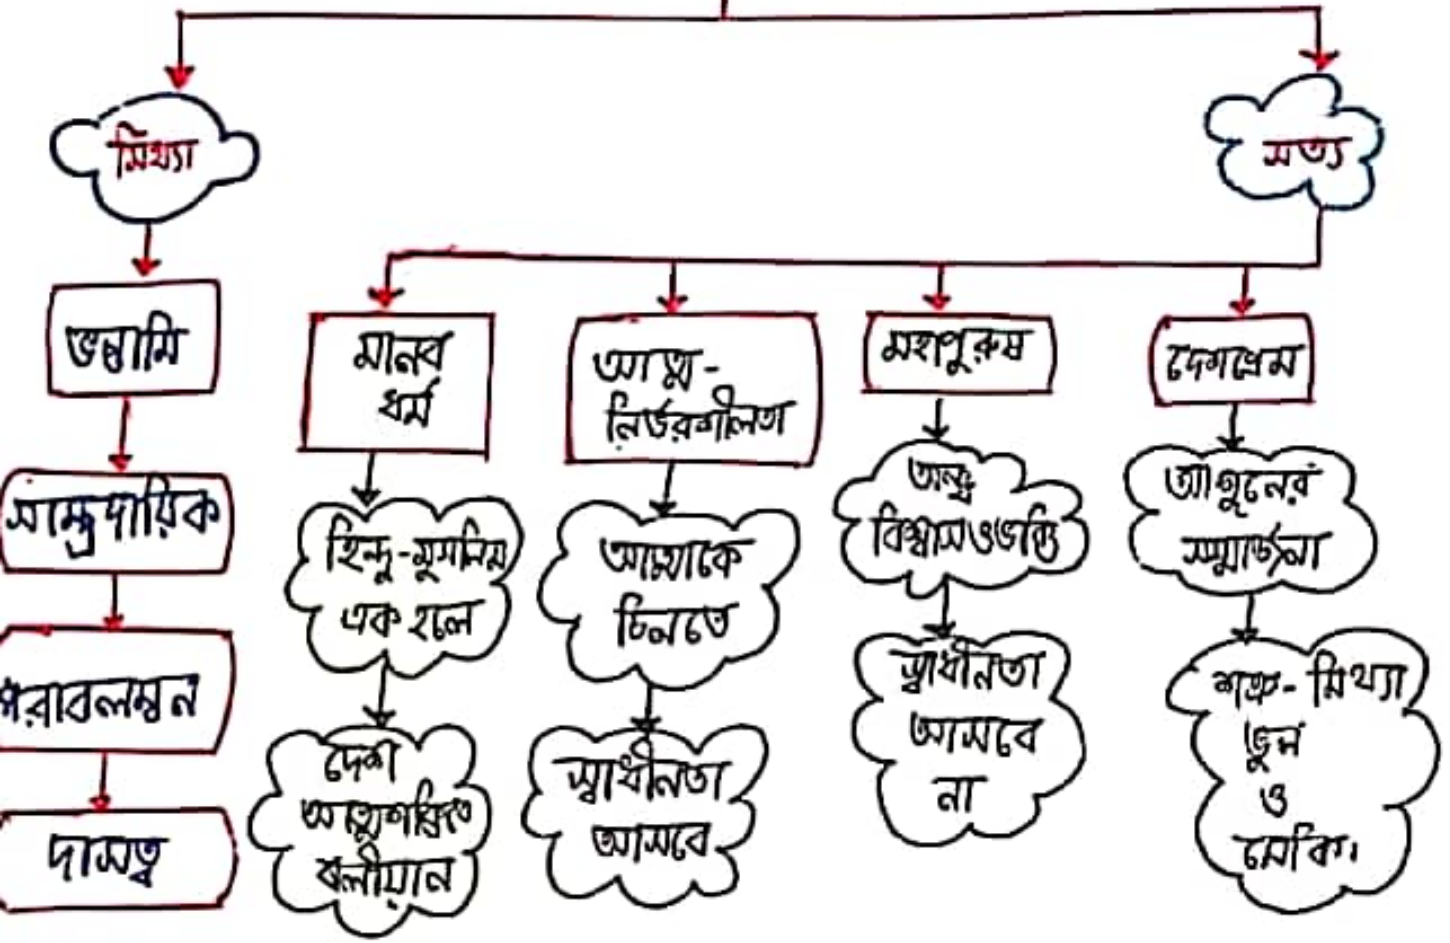 মিথ্যা
সত্য
ভন্ডামি
সাম্প্রদায়িক
পরাবলম্বন
দাসত্ব
মানব
ধর্ম
হিন্দু-মুসলিম
এক হলে
দেশ
আত্মশক্তিতে
বলীয়ান
আত্ম-
নির্ভরশীলতা
আত্মাকে
চিনতে
স্বাধীনতা
আসবে
মহাপুরুষ
অন্ধ
বিশ্বাস ও ভক্তি
স্বাধীনতা
আসবে
না
দেশপ্রেম
আগুনের
সম্মার্জনা
শত্রু- মিথ্যা
ভুল
ও
মেকি।